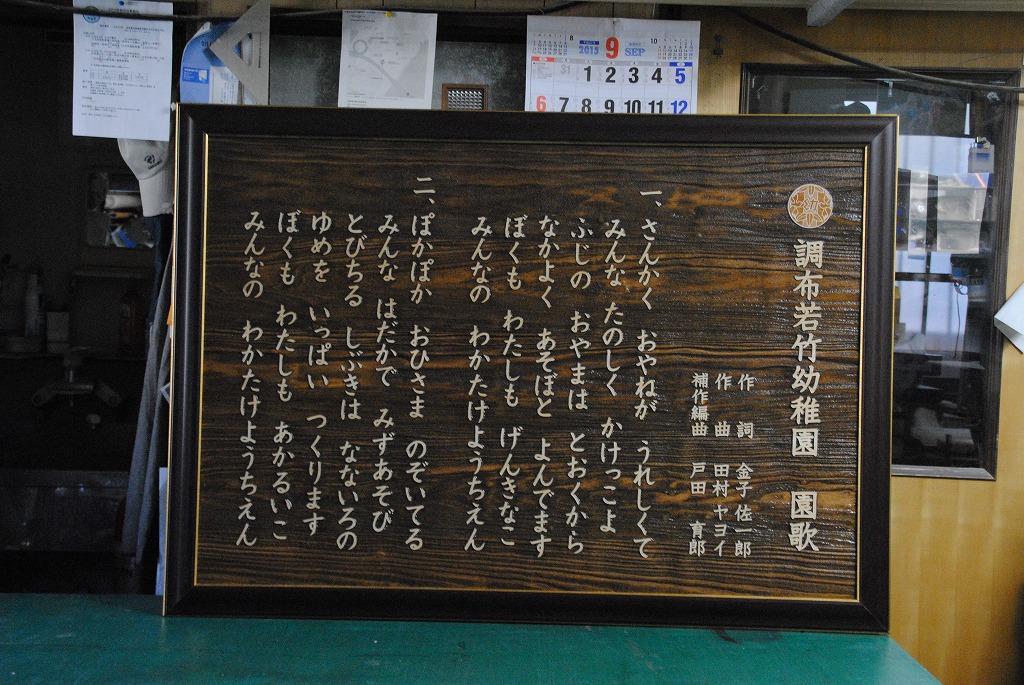 調布若竹幼稚園 園歌
作 詞 金子 佐一郎
作 曲 田村 ヤヨイ
補作編曲 戸田 育郎
一、さんかく おやねが うれしくて
みんな たのしく かけっこよ
ふじの おやまは とおくから
なかよく あそぼと よんでます
ぼくも わたしも げんきなこ
みんなの わかたけようちえん
二、ぽかぽか おひさま のぞいてる
みんな はだかで みずあそび
とびちる しぶきは なないろの
ゆめを いっぱい つくります
ぼくも わたしも あかるいこ
みんなの わかたけようちえん
8 2015 9 SEP 10
31 1 2 3 4 5
6 7 8 9 10 11 12